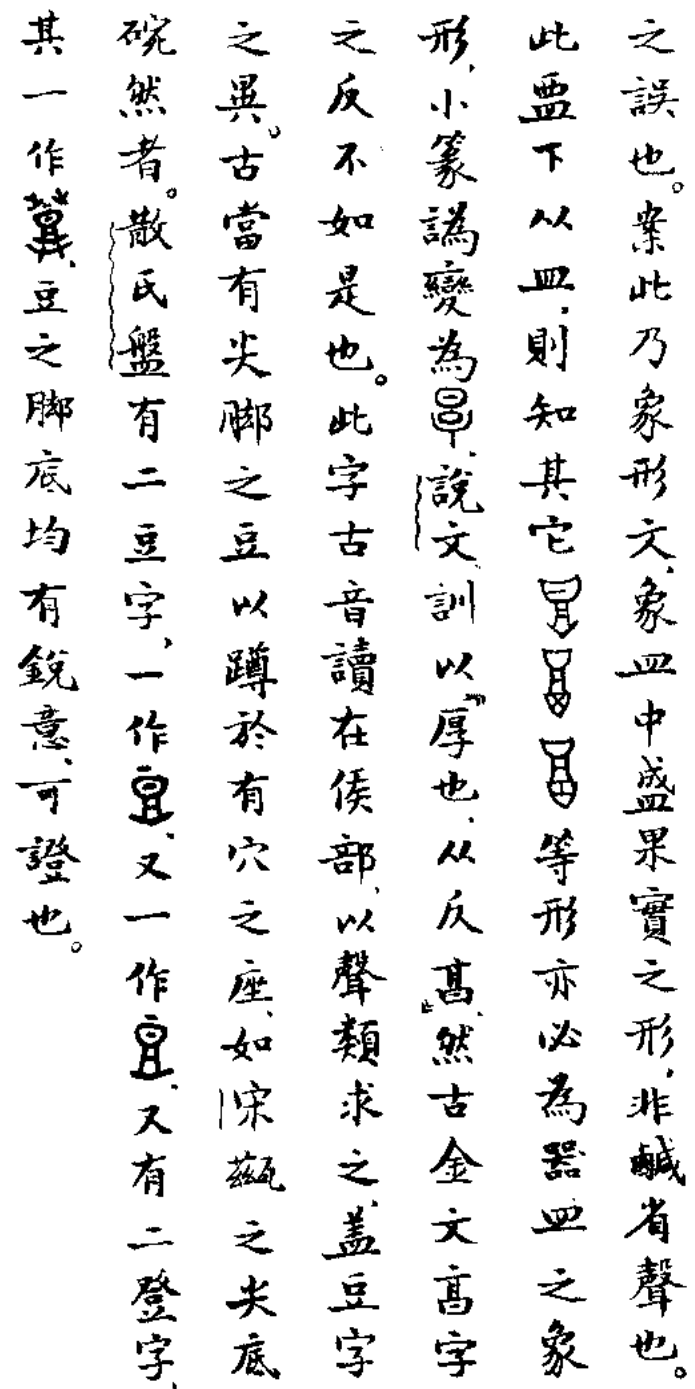 之誤也。案此乃象形文、象皿中盛果實之形、非鹹省聲也。
此覃下从皿、則知其它等形亦必為器皿之象
形、小篆譌變為、說文訓以「厚也、从反亯」、然古金文亯字
之反不如是也。此字古音讀在侯部、以聲類求之、蓋豆字
之異。古當有尖脚之豆以蹲於有穴之座、如宋甆之尖底
碗然者。散氏盤有二豆字、一作、又一作、又有二登字、
其一作、豆之脚底均有銳意、可證也。